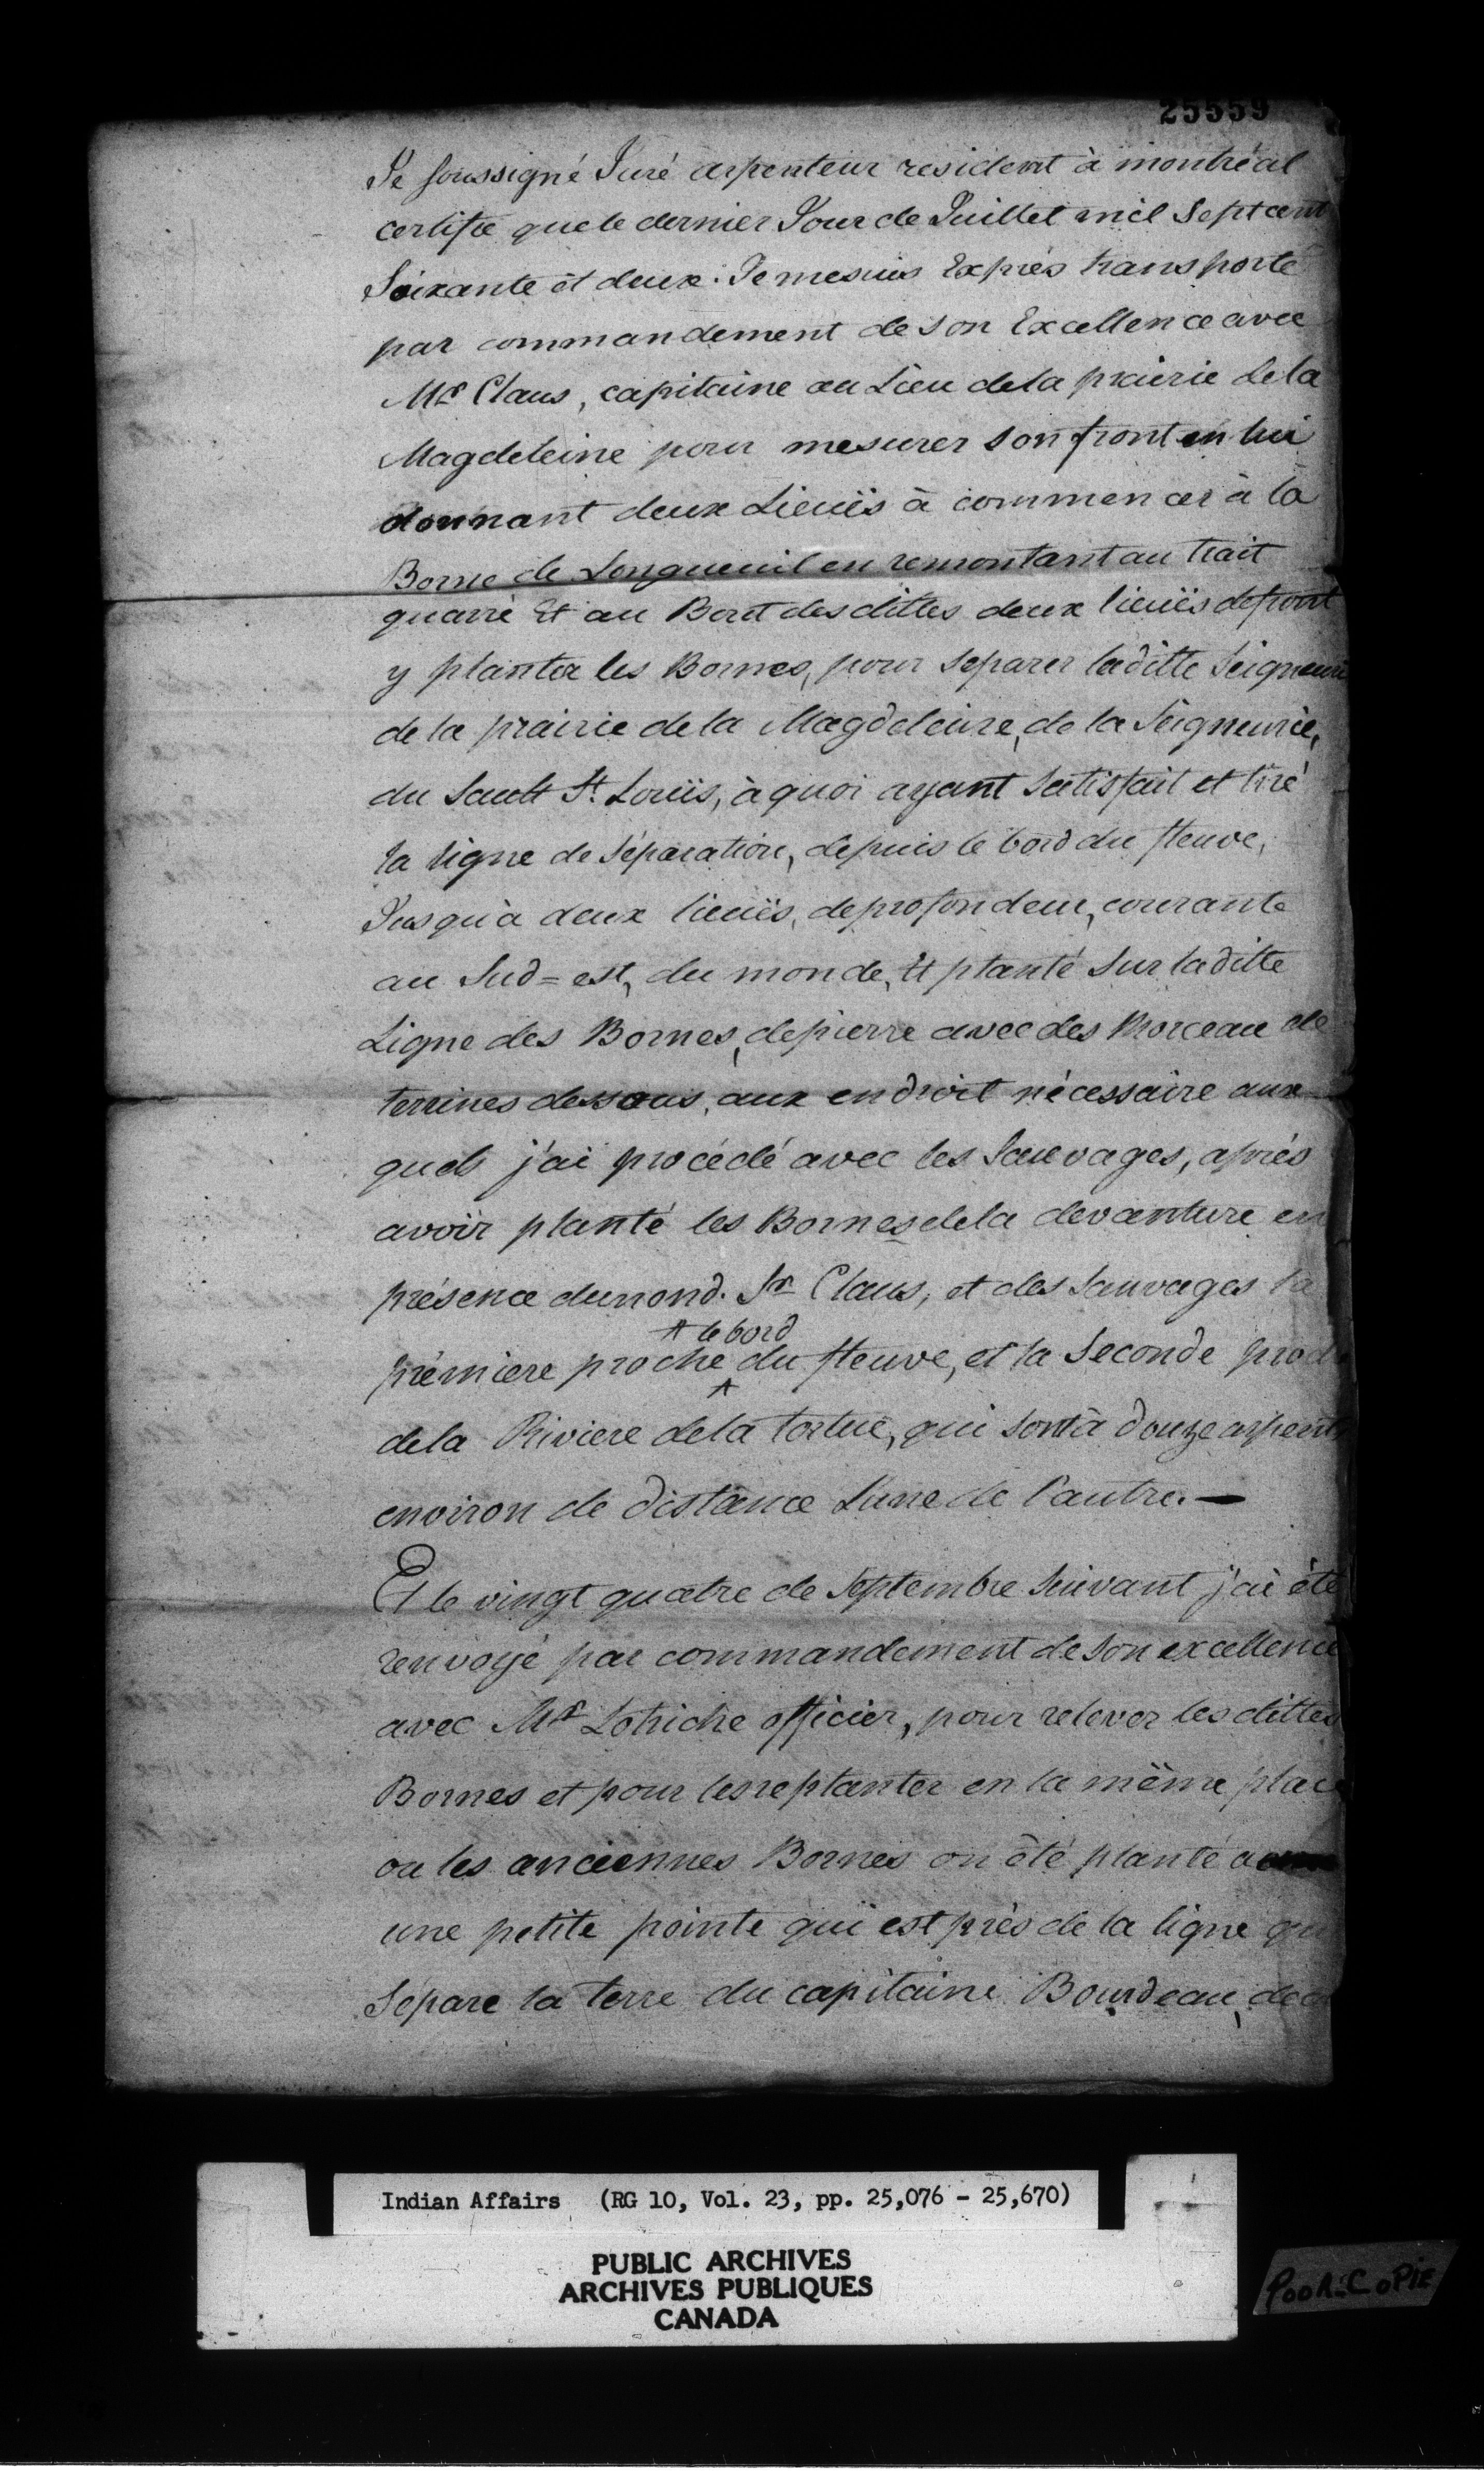 25559
Je soussigné Juré arpenteur resident à montréal
certifie que le dernier Jour de Juillet mil Sept cent
Soixante et deux. Je me suis Exprès transporté
par commandement de son Excellence avec
Mr. Claus, capitaine au Lieu de la prairie de la
Magdeleine pour mesurer son front en lui
donnant deux Lieuës à commencer à la
Borne de Longueuil en remontant au trait
quarré Et au Bout desdittes deux lieuës de front
y planter les Bornes, pour Separer laditte Seigneurie
de la prairie de la Magdeleine, de la Seigneurie,
du Sault St. Louïs, à quoi ayant Satisfait et tiré
la ligne de Séparation, depuis le bord du fleuve,
Jusqu'à deux lieuës, de profondeur, courante
au Sud=est, du monde, Et planté Sur laditte
Ligne des Bornes, de pierre avec des Morceau de
terrines dessous, aux endroit nécessaire aux
quels j'ai procédé avec les Sauvages, après
avoir planté les Bornes de la devanture en
présence du nond. Sr. Claus, et des Sauvages la
le bord
prémiere proche du fleuve, et la Seconde proche
de la Riviere de la tortuë, qui sont à douze arpents
environ de distance Lune de l'autre. —
Et le vingt quatre de Septembre Suivant j'ai été
renvoyé par commandement de Son excellence
avec Mr. Lotriche officier, pour relever lesdittes
Bornes et pour les replanter en la même place
ou les anciennes Bornes on été planté a
une petite pointe qui est près de la ligne qui
Separe la terre du capitaine Bourdeau, de
Indian Affairs (RG 10, Vol. 23, pp. 25,076 - 25,670)
PUBLIC ARCHIVES
ARCHIVES PUBLIQUES
CANADA
POOR COPIE